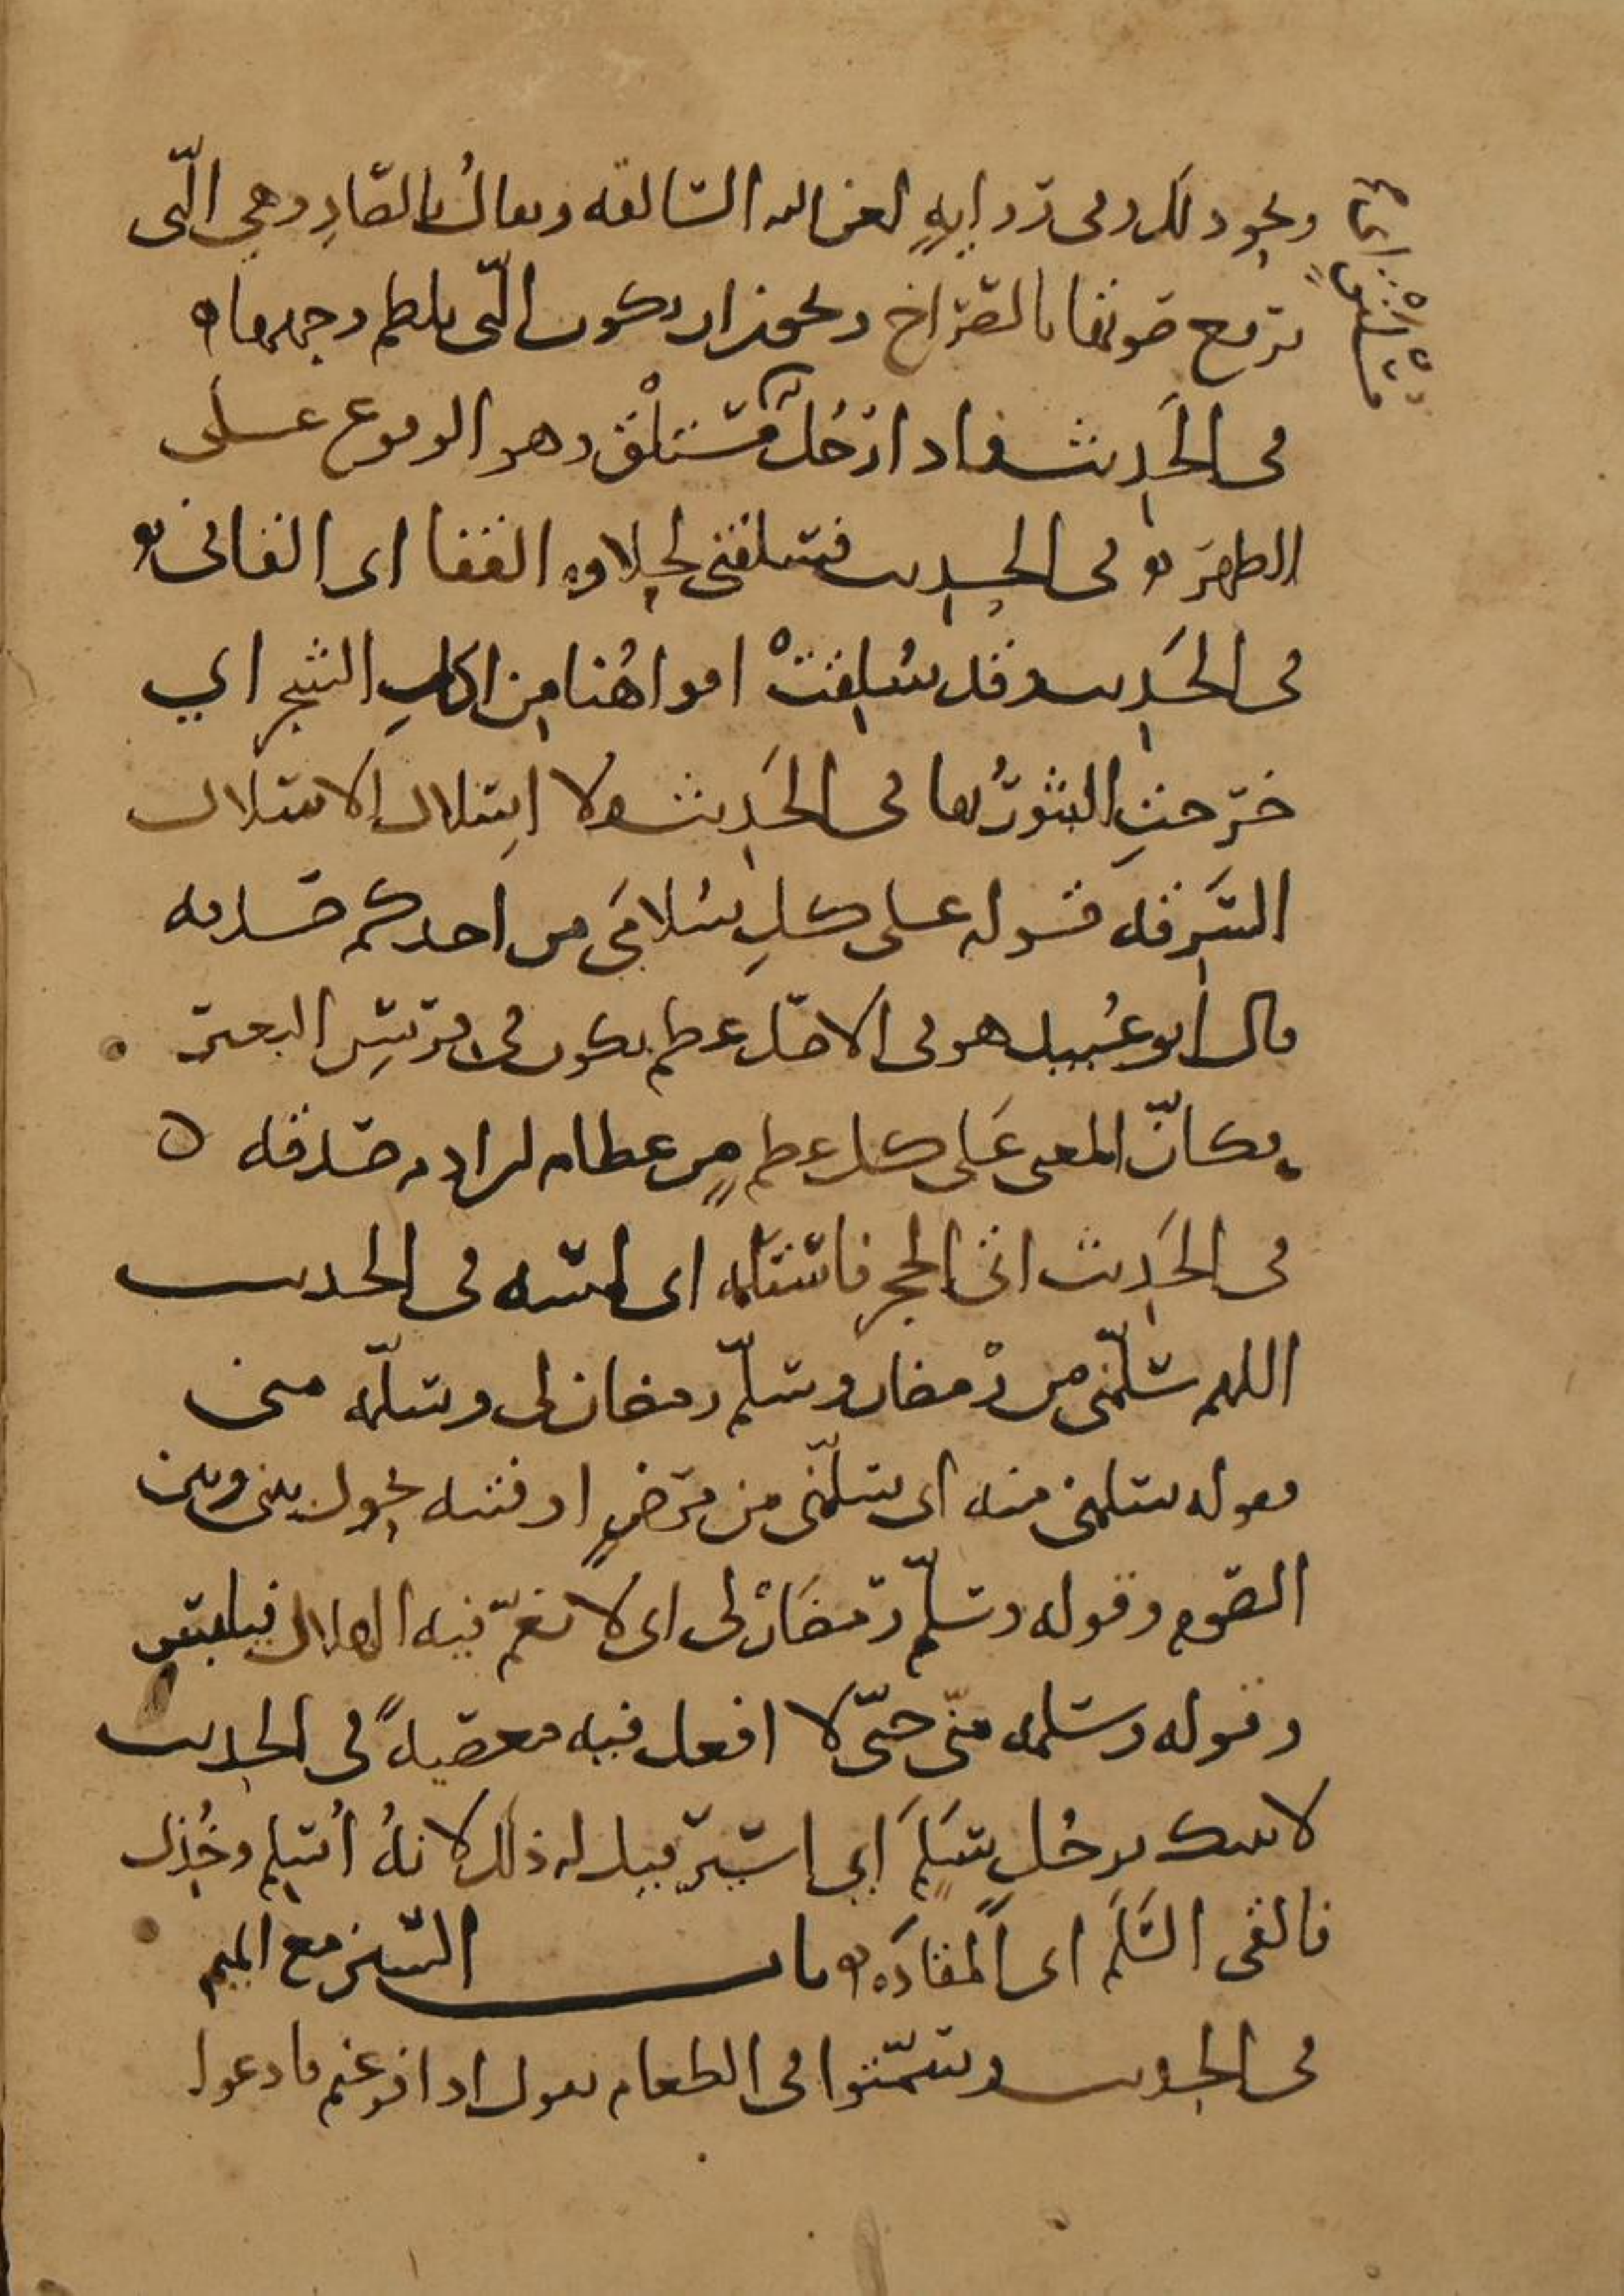 ونحو ذلك وفي رواية لعن الله السالقة ويقال بالصاد وهي التي
ترفع صوتها بالصراخ ويجوز ان يكون التي تلطم وجهها ه
في الحديث فاذا رَجُل مُسْلَنْقٍ وهو الوقوع على
الظهر ه في الحديث فسلقني لحلاوه القفا اي القاني ه
في الحديث وقد سُلِقَتْ افواهُنا مِن اكلِ الشجر اي
خرجتِ البثورُ بها في الحديث ولا اِسْلال الاسلال
السَرِقه قوله على كلِ سُلامَى من احدكم صدقه
قال ابو عُبيد هو في الاصل عظم يكون في فِرْسِن البعير
فكانّ المعنى عَلى كل عظم مِن عظام ابن ادم صدقه ه
في الحَدِيث اتى الحجر فاستلمه اي لمسه في الحديث
اللهم سلّمني من رمضان وسلّم رمضان لي وسلّمه مني
قوله سلمني منه اي سلّمني من مَرَضٍ او فتنه يحول بيني وبين
الصَوم وقوله وسلّم رمضان لي اي لا يغمّ فيه الهلال فيلتبس
وقوله وسلمه منّي حتّى لا افعل فيه معصيةً في الحديث
لاتينك برجُل سَلَمٍ اي اسير قيل له ذلك لانهُ اُسْلِم وخُذِل
فالقى السَّلَم اي المقادَه ه باب السين مع الميم
في الحديث وسَمّتوا في الطعام يقول اذا فرغتم فادعوا